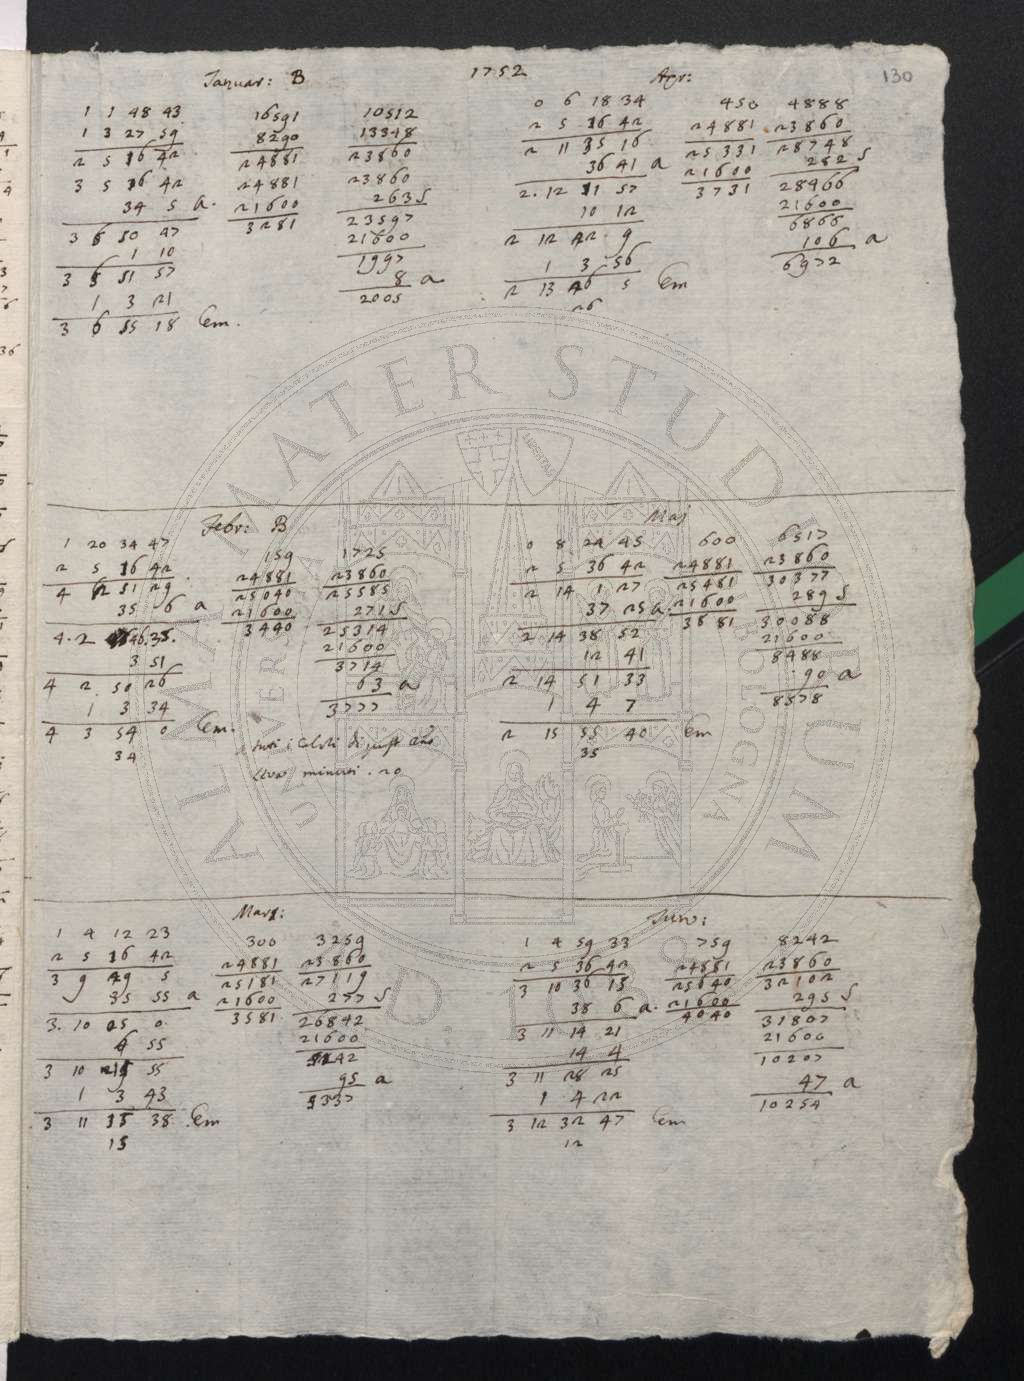 1752
130
Januar: B
1 1 48 43
1 3 27 59
2 5 16 42
3 5 16 42
34 5 a.
3 6 50 47
1 10
3 6 51 57
1 3 21
3 6 55 18 Em.
16591
8290
24881
24881
21600
3281
10512
13348
23860
23860
263 S
23597
21600
1997
8 a
2005
Apr:
0 6 18 34
2 5 16 42
2 11 35 16
36 41 a
2. 12 11 57
10 12
2 12 42 9
1 3 56
2 13 46 5 Em
26
450
24881
25331
21600
3731
4888
23860
28748
282 S
28466
21600
6866
106 a
6972
Febr: B
1 20 34 47
2 5 16 42
4 2 51 29
35 6 a
4. 2 46. 35.
3 51
4 2 50 26
1 3 34
4 3 54 0 Em.
34
159
24881
25040
21600
3440
1725
23860
25585
271 S
25314
21600
3714
63 a
3777
minuti. 20
Maj
0 8 24 45
2 5 36 42
2 14 1 27
37 25 a.
2 14 38 52
12 41
2 14 51 33
1 4 7
2 15 55 40 Em
35
600
24881
25481
21600
3881
6517
23860
30377
289 S
30088
21600
8488
90 a
8578
Mart:
1 4 12 23
2 5 16 42
3 9 29 5
35 55 a
3. 10 05 0
6 55
3 10 11 55
1 3 43
3 11 15 38 .Em
15
300
24881
25181
21600
3581
3259
23860
27119
277 S
26842
21600
5242
95 a
5337
Jun:
1 4 59 33
2 5 36 42
3 10 36 15
38 6 a.
3 11 14 21
14 4
3 11 28 25
1 4 22
3 12 32 47 Em
12
759
24881
25640
21600
4040
8242
23860
32102
295 S
31807
21600
10207
47 a
10254
ALMA MATER STUDIORUM